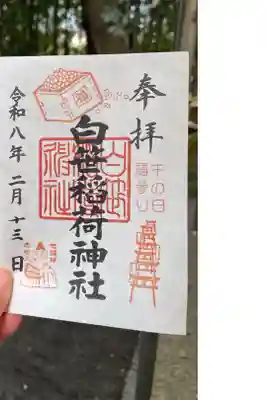 奉拝
午の日
福参り
白笹稲荷神社
令和八年 二月 十三日